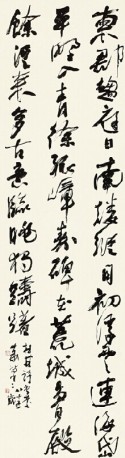 東郡趨庭日南樓縱目初浮雲連海岱
平野入青徐孤嶂秦碑在荒城魯殿
餘從來多古意臨眺獨躊躇